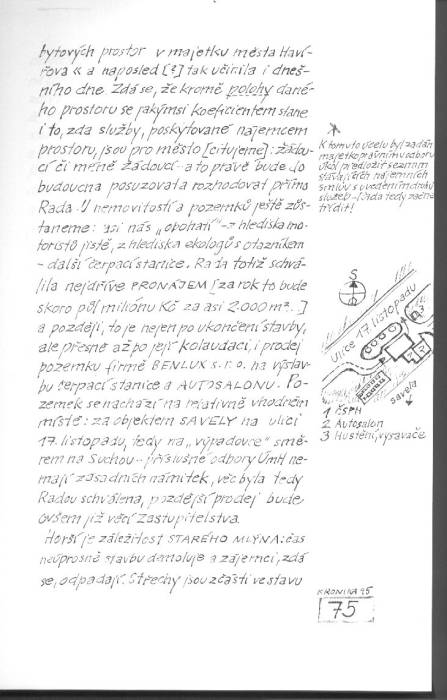 bytových prostor v majetku města Haví-
řova « a naposled [?] tak učinila i dneš-
ního dne. Zdá se, že kromě polohy dané-
ho prostoru se jakýmsi koeficientem stane
i to, zda služby, poskytované nájemcem
prostoru, jsou pro město [citujeme]: žádou-
cí či méně žádoucí - a to právě bude do
budoucna posuzovat a rozhodovat přímo
Rada. U nemovitostí a pozemků ještě zůs-
taneme: asi nás „obohatí" - z hlediska mo-
toristů jistě, z hlediska ekologů s otazníkem
- další čerpací stanice. Rada totiž schvá-
lila nejdříve PRONÁJEM [za rok to bude
skoro půl miliónu Kč za asi 2.000 m². ]
a později, to je nejen po ukončení stavby,
ale přesně až po její kolaudaci, i prodej
pozemku firmě BENLUX s.r.o. na výstav-
bu čerpací stanice a AUTOSALONU. Po-
zemek se nachází na relativně vhodném
místě: za objektem SAVELY na ulici
17. listopadu, tedy na „výpadovce" smě-
rem na Suchou - příslušné odbory ÚmH ne-
mají zásadních námitek, věc byla tedy
Radou schválena, pozdější prodej bude
ovšem již věcí Zastupitelstva.
Horší je záležitost STARÉHO MLÝNA: čas
neúprosně stavbu demoluje a zájemci, zdá
se, odpadají. Střechy jsou zčásti ve stavu
K tomuto účelu byl zadán
majetkoprávnímu odboru
úkol předložit seznam
stávajících nájemních
smluv s uvedením druhu
služeb - Rada tedy začne
třídit!
S
Ulice 17. listopadu
savela
1 ČSPH
2 Autosalon
3 Huštění, vysavače
KRONIKA 95
75